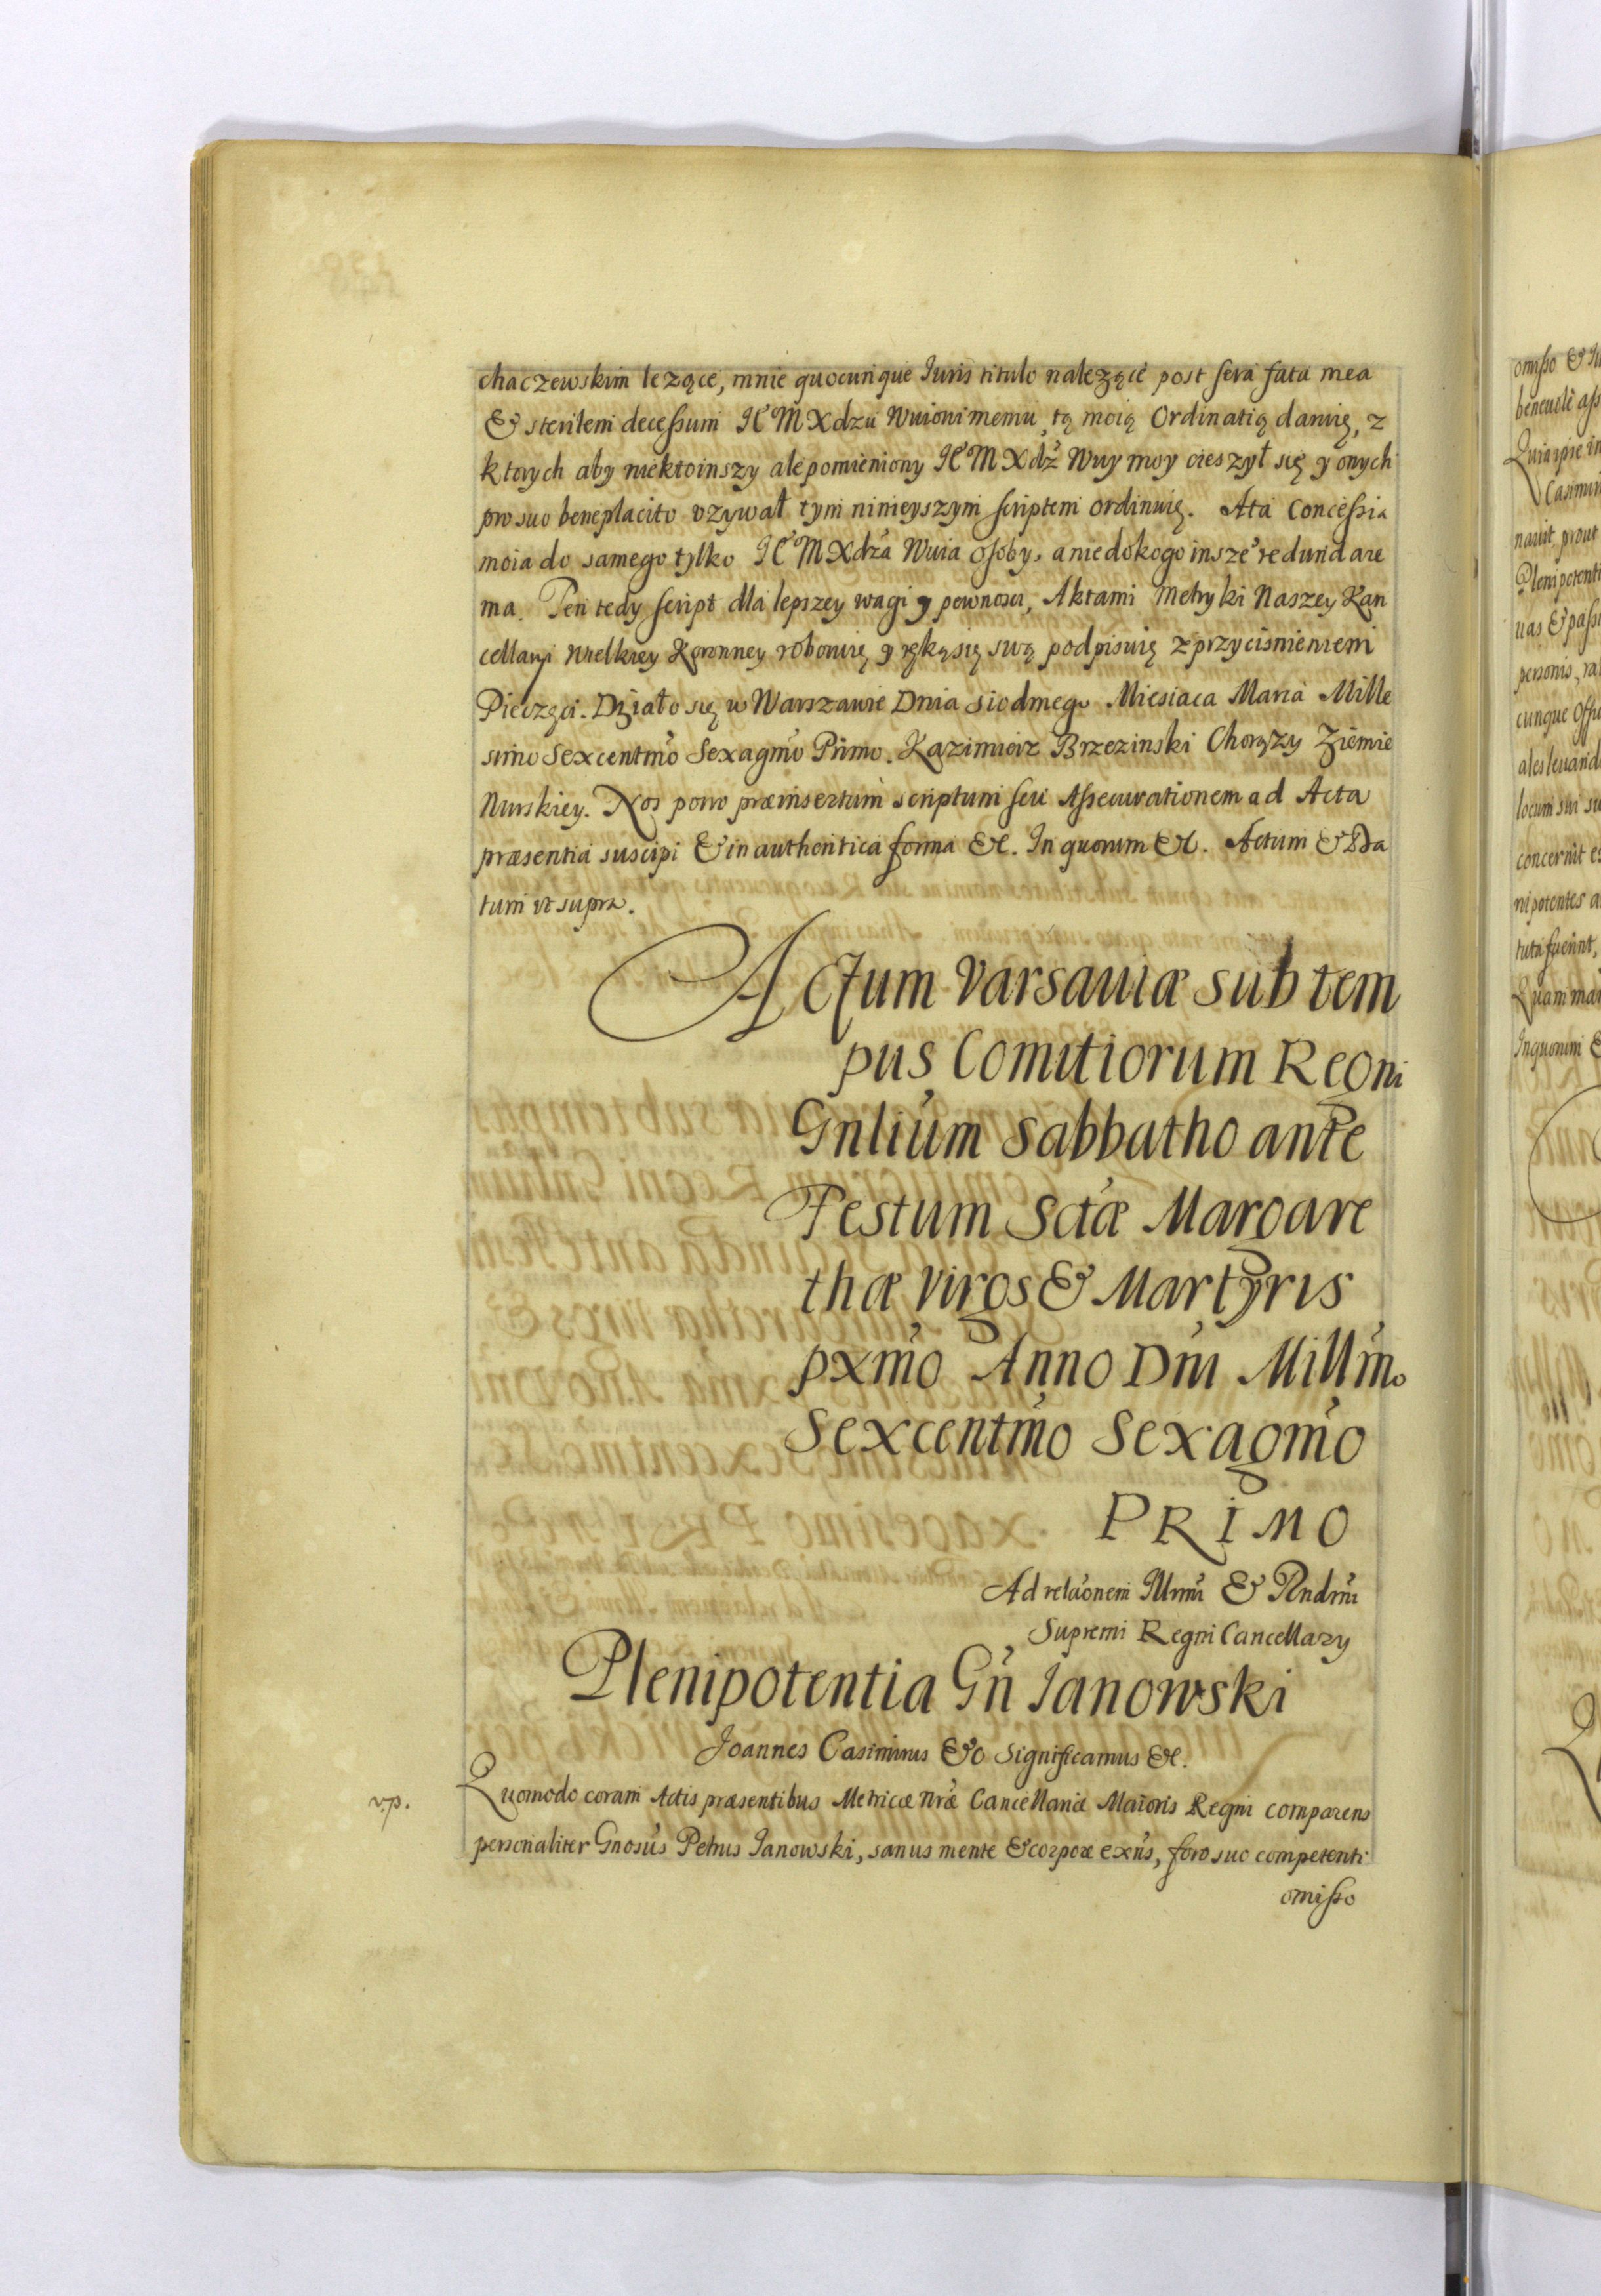 chaczewskim lezące, mnie quocunque Iuris titulo nalezące post sera fata mea
& sterilem decessum JE᷃ M Xdzu Wuiowi memu, tą moią Ordinatią daruię, z
ktorych aby niektoinszy ale pomieniony JE᷃ M Xdz Wuy moy cieszył się y onych
pro suo beneplacito vzywał tym ninieyszym scriptem ordinuię. Ata Concessia
moia do samego tylko JE᷃ M Xdza Wuia osoby, a nie do kogo insze᷃ redundare
ma. Ten tedy script dla lepszey wagi y pewnosci, Aktami Metryki Naszey Kan
cellaryi Wielkiey Koronney roboruię y ręką się swą podpisuię z przycisnieniem
Pieczęci. Działo się w Warszawie Dnia siodmego Miesiaca Maria Mille
simo Sexcentmo Sexagmo Primo. Kazimierz Brzezinski Chorązy Ziemie
Nurskiey. Nos porro præinsertum scriptum seu Assecurationem ad Acta
præsentia suscipi & in authentica forma &c. In quorum &c. Actum & Da
tum vt supra.
Actum Varsauiæ sub tem
pus Comitiorum Regni
Gnlium Sabbatho ante
Festum Sctæ Margare
thæ Virgs & Martyris
pxmo Anno Dni Millmo
Sexcentmo Sexagmo
PRIMO
Ad relaonem Illrmi & Rndmi
Supremi Regni Cancellary
Plenipotentia Gn Ianowski
Joannes Casimirus &c Significamus &c.
v.p.
Quomodo coram Actis præsentibus Metricæ nræ Cancellariæ Maioris Regni comparens
personaliter Gnosus Petrus Ianowski, sanus mente & corpore exns, foro suo competenti
omisso